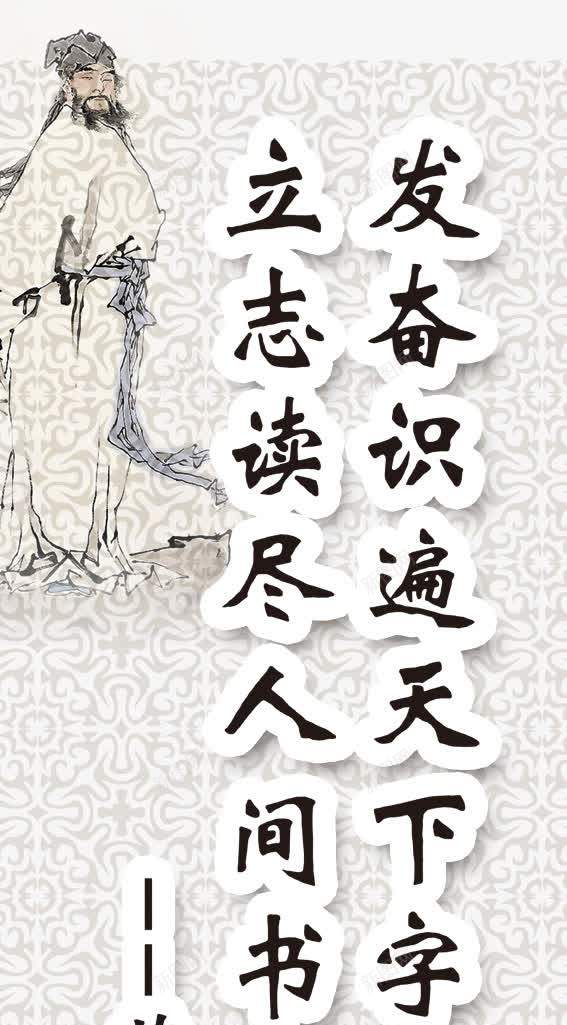 发奋识遍天下字
立志读尽人间书
——